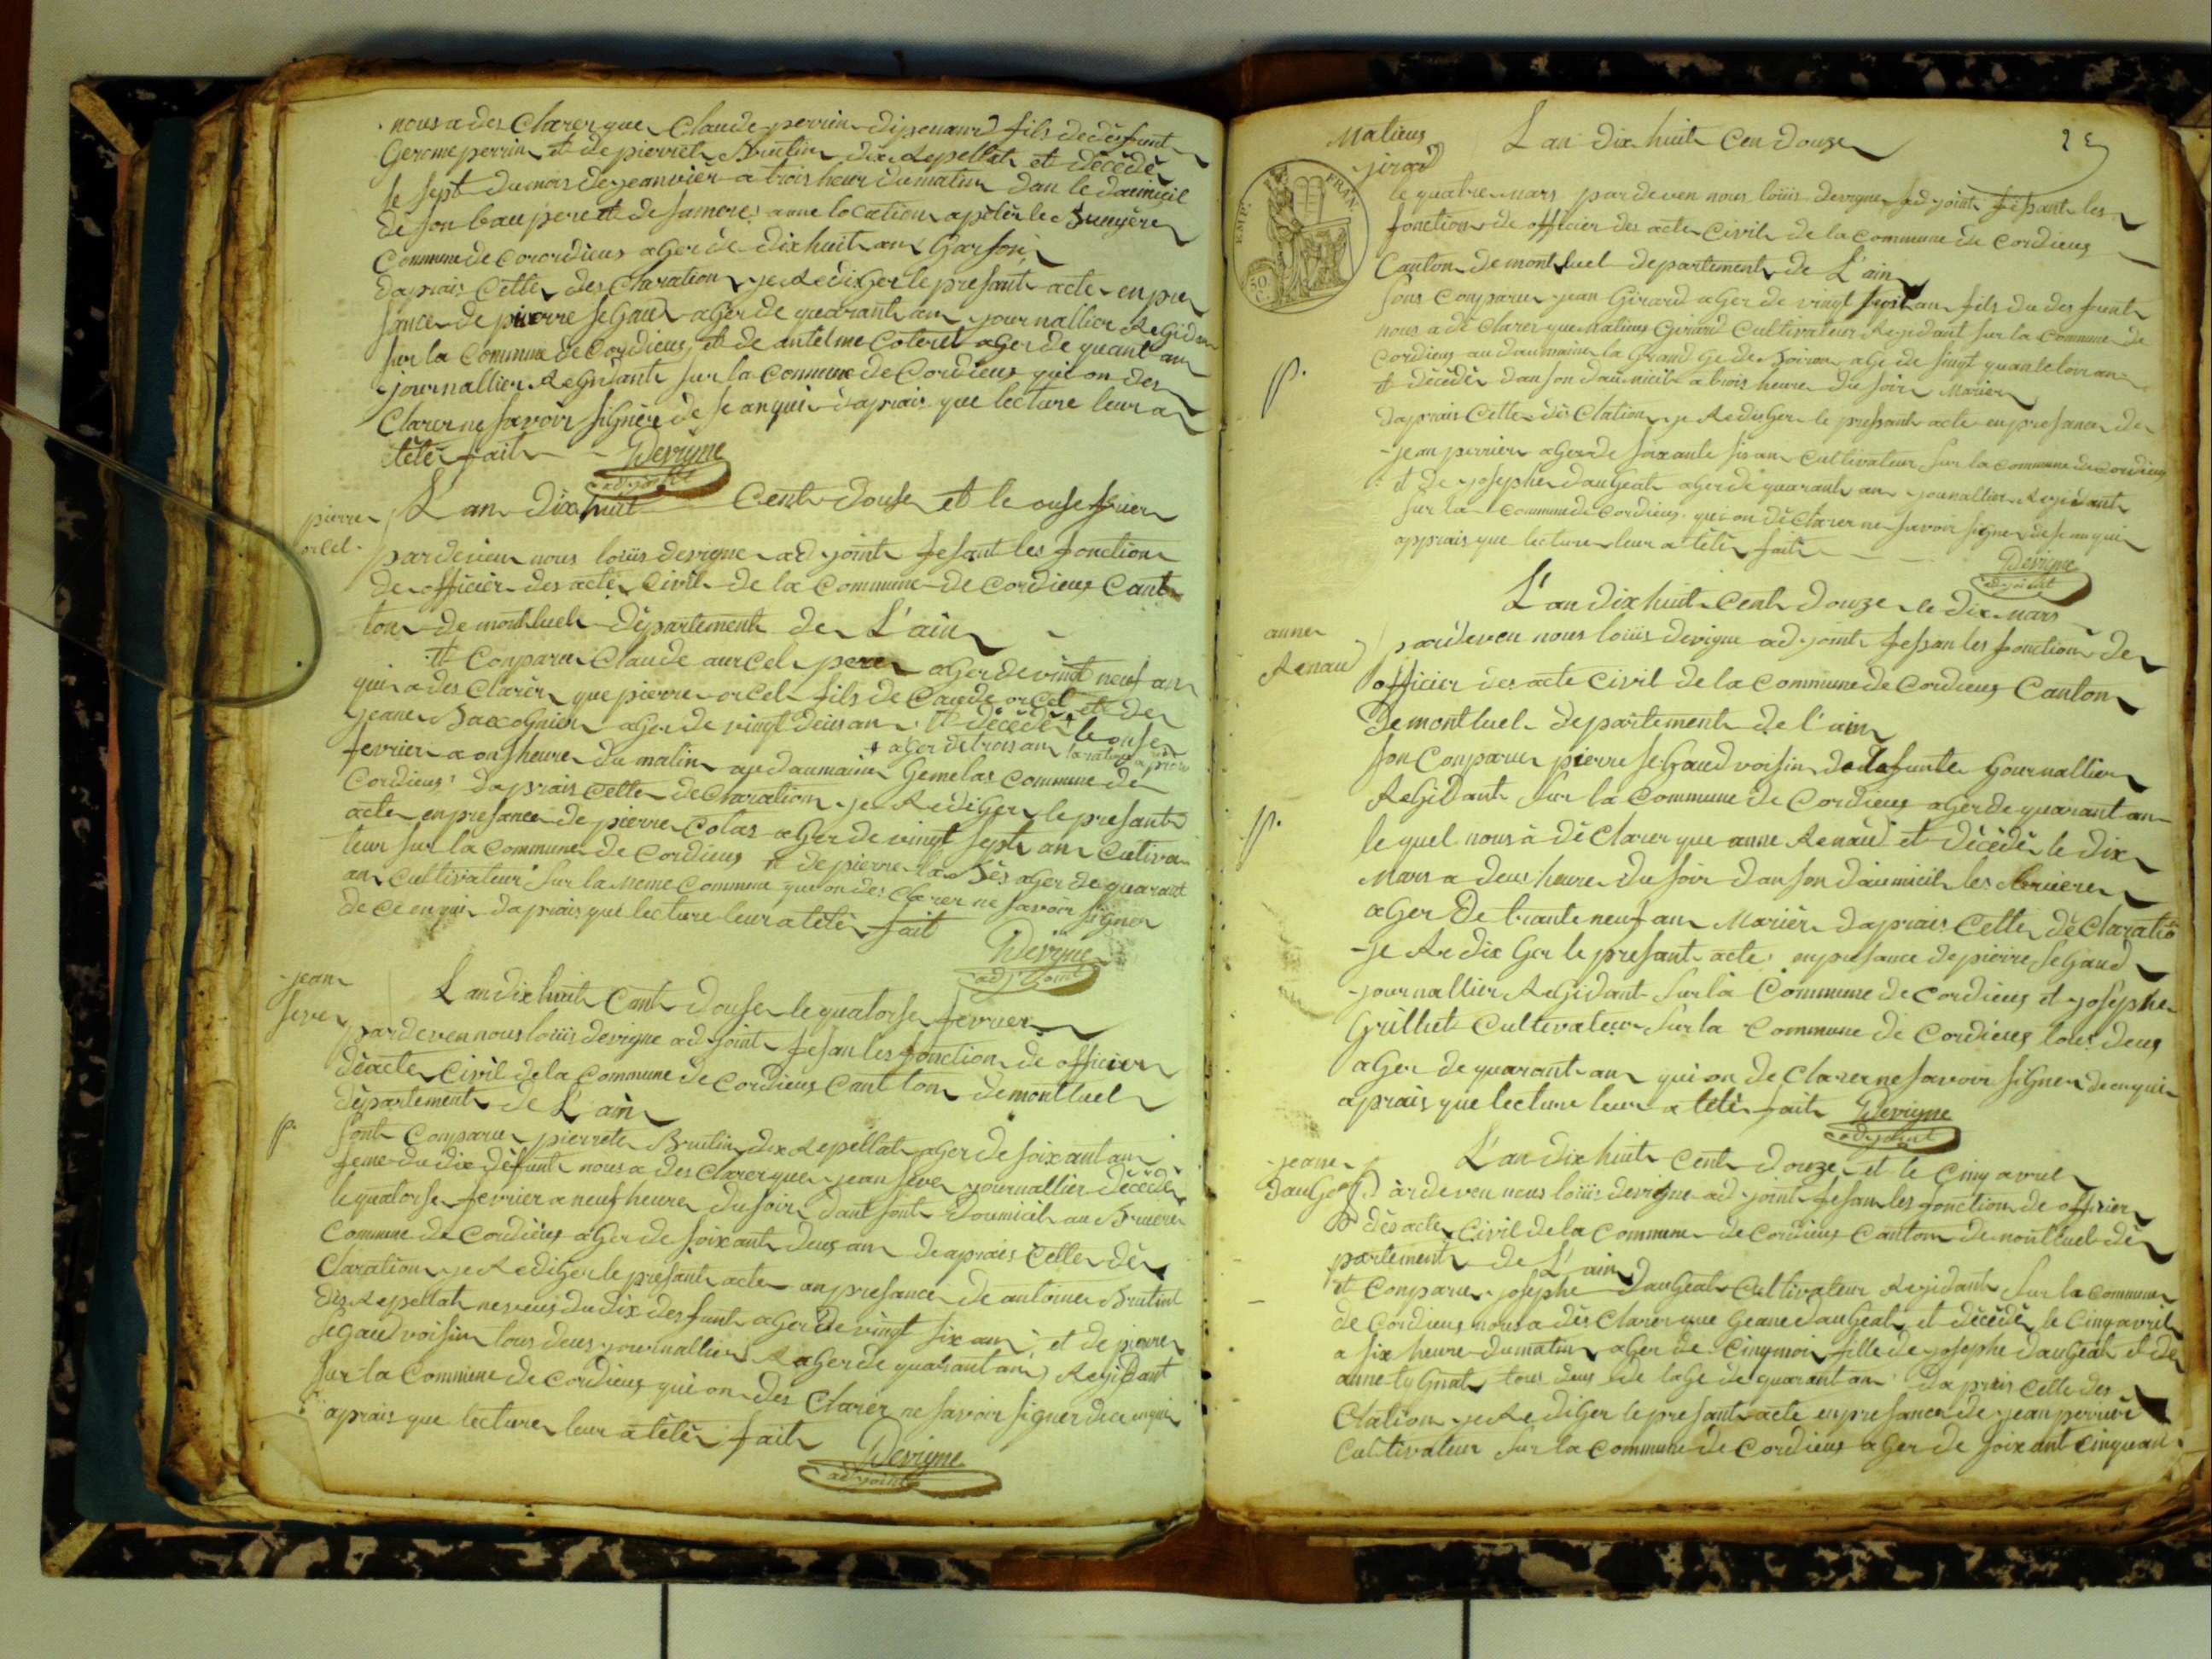 nous a des Clarer que Claude perrin fils de desfunt
Gerome perrin et de pierret Brutin dix Repellat et décédé
le sept du mois de jeanvier a trois heur du matin dan le daumicil
de son beau pere et de sa mere
Commune de Corordieus ager de dix huit an Garson
daprais Cette des Claration je Rediger le presant acte en pre
sance de pierre seGaud ager de quarant an journallier ReGidan
sur la Commune de Cordieus et de antelme Coteret ager de quant an
journallier ReGidant sur la Comune de Cordieus qui on des
Clarer ne savoir siGner de se anqui daprais que lecture leur a
tété fait Devigne
adjoint
pierre
orcel
L an dix huit Cent douse et le onse
par devien nous loüis devigne ad joint fesant les fonction
de officier des acte Civil de la Commune de Cordieus Cant
ton de montluel département de L'ain
et Conparu Claude aurcel pere ager de vint neuf an
qui a des Clarer que pierre orcel fils de Claude orcel et de
jeane ager de vingt deus an et décédé le onse
+ ager de trois an
fevrier a ons heure du matin au daumaine Gemelas Commune de
Cordieus daprais Cette deClaration je Rediger le presant
acte en presance de pierre Colas ager de vingt sept an Cutiva
teur sur la Commune de Cordieus et de pierre ager de quarant
an Cultivateur sur la meme Commune qui on des Clarer ne savoir signer
de ce enqui daprais que lecture leur a tété fait
Devigne
adjoint
jean
seve
L an dix huit Cant douse le quatorse fevrier
par deven nous loüis devigne ad joint fesan les fonction de officier
dè acte Civil de la Commune de Cordieus Cant ton de montluel
département de L'ain
p.
sont Conparu pierrete Brutin dix Repellat ager de soixant an
feme du dix défunt nous a des Clarer que jean seve journallier décédé
le quatorse fevrier a neuf heure du soir dant sont doumicil au Bruiere
Commune de Cordieus ager de soixant deus an de aprais Cette dé
Claration je Rediger le presant acte an presance de antoine Brutin
dix Repellat neveus du dix desfunt ager de vingt six an et de pierre
seGaud voisin tous deus journallier ager de quarant an ReGidant
sur la Commune de Cordieus qui on des Clarer ne savoir signer de ce enqui
aprais que lecture leur a tété fait
Devigne
adjoint
Matieus
L an dix huit Cen douze
25
EMP. FRAN.
50 C.
le quatre mars par deven nous loüis devigne ad joint fesant les
fonction de officier des acte Civil de la Commune de Cordieus
Canton de montluel departement de L'ain
sons Conparu jean Girard ager de vingt an fils du des funt
nous a dé Clarer que matieus Girard Cultivateur Regidant sur la Commune de
Cordieus au daumaine la Grand
p.
et décédé dan son daumicil a trois heure du soir Marier
daprais Cette dés Clation je Rediger le presant acte en presance de
jean perrier ager de soixante sis an Cultivateur sur la commune de Cordieus
et de josephe dauGeat ager de quarant an jounallier Regidant
sur la Commune de Cordieus qui on déClarer ne savoir signer de se an qui
apprais que lecture leur a tété fait
Devigne
adjoint
anne
Renaud
L'an dix huit Cent douze le dix mars
par deven nous loüis devigne ad joint fessan les fonction de
officier des acte Civil de la Commune de Cordieus Canton
de montluel departement de l'ain
son Conparu pierre seGaud voisin de defunte Gournallier
ReGidant sur la Commune de Cordieus ager de quarant an
p.
le quel nous à dé Clarer que anne Renaud et décédé le dix
Mars a deus heure du soir dan son daumicil les Bruiere
ager de trante neuf an Mariér daprais Cette déClaratio
je Redix Ger le presant acte en presance de pierre seGaud
journallier ReGidant sur la Commune de Cordieus et josephe
Grilliet Cultivateur sur la Commune de Cordieus tous deus
ager de quarant an qui on de Clarer ne savoir siGner de enqui
aprais que lecture leur a tété fait Devigne
adjoint
jeane
dauGeat
L'an dix huit Cent douze et le Cinq avril
par deven nous loüis devigne ad joint fesan les fonction de officier
dés acte Civil de la Commune de Cordieus Canton de montluel dé
partement de L'ain
et Conparu josephe dauGeat Cultivateur Regidant sur la commune
de Cordieus nous a dés Clarer que Geane dauGeat et décédé le Cinq avril
a six heure du matin ager de Cinq moi fille de josephe dauGeat et de
anne tyGnat tous deus de lage de quarant an da prais Cette des
Clation je Rediger le presant acte en presance de jean perrier
Cultivateur sur la Commune de Cordieus ager de soixant Cinquan